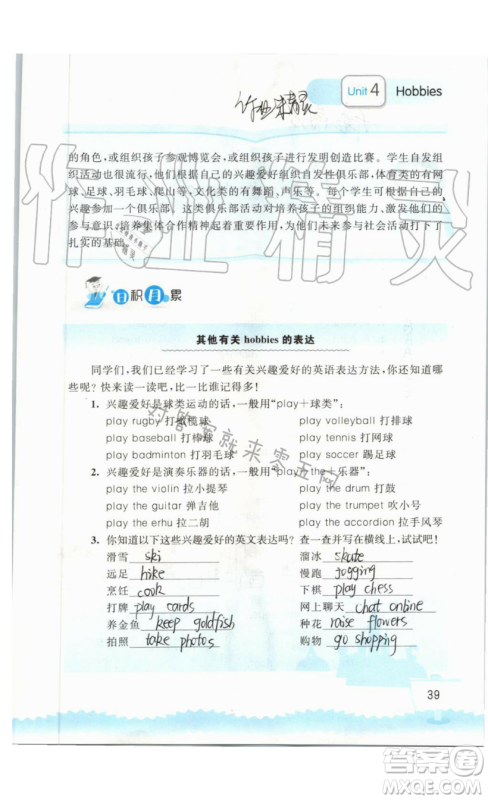 Unit 4 Hobbies
作业精灵
的角色，或组织孩子参观博览会，或组织孩子进行发明创造比赛。学生自发组
织活动是根据自己的兴趣爱好组织自发性俱乐部，体育类的有网
球、足球、羽毛球、爬山等，文化类的有舞蹈、声乐等。我们可根据自己的
兴趣参加一个俱乐部。俱乐部活动对培养孩子的优势、能力、激发他们的
参与意识、培养集体合作精神起着重要作用，为他们未来参与社会活动打下了
扎实的基础。
日积月累
其他有关 hobbies 的表达
同学们，我们已经学习了一些有关兴趣爱好的英语表达方法，你还知道哪
些？快来读一读吧，比一比谁记得多！
1. 兴趣爱好是球类运动的话，一般用“play＋球类”：
play rugby 打橄榄球 play volleyball 打排球
play baseball 打棒球 play tennis 打网球
play badminton 打羽毛球 play soccer 踢足球
2. 兴趣爱好是演奏乐器的话，一般用“play the＋乐器”：
play the violin 拉小提琴 play the drum 打鼓
play the guitar 弹吉他 play the trumpet 吹小号
play the erhu 拉二胡 play the accordion 拉手风琴
3. 你知道以下这些兴趣爱好的英文表达吗？查一查并写在横线上，试试看吧！
滑雪 ski 溜冰 skate
远足 hike 慢跑 jogging
烹饪 下棋 play chess
打牌 play cards 网上聊天 chat online
养金鱼 keep goldfish 种花 raise flowers
拍照 take photos 购物 go shopping
对答案就来零五网
39
答案圈
MXQE.COM